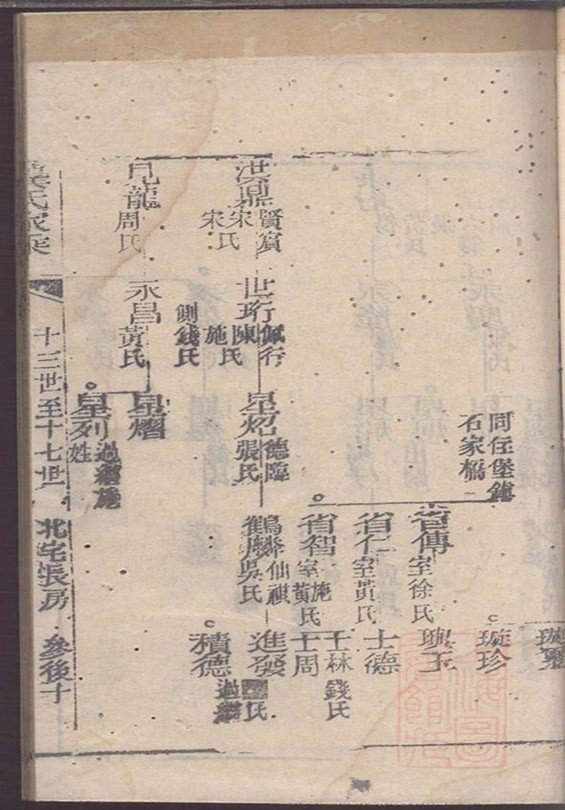 同在堡鎮
石家橋
省傳
室徐氏
珍
省仁
室黃氏
士德
省智
施氏
室黃氏
士林
錢氏
士周
洪鼎
賢賓
宋氏
宋氏
世珩
佩行
陳氏
施氏
側錢氏
星炤
德臨
張氏
鶴麟
仙祺
吳氏
進發
氏
積德
過繼
見龍
周氏
永昌
黃氏
星熠
星列
過繼施
姓
氏家乘
十三世至十七世
北宅張房
叅後十